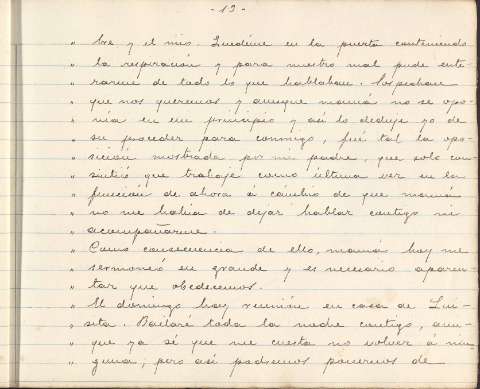 - 13 -
" bre y el mío. Quedéme en la puerta conteniendo
" la respiración y para nuestro mal pude ente-
" rarme de todo lo que hablaban. Sospechan
" que nos queremos y aunque mamá no se opo-
" nía en un principio y así lo deduje yo de
" su proceder para conmigo, fué tal la opo-
" sición mostrada por mi padre, que solo con-
" sintió que trabaje como última vez en la
" función de ahora á cámbio de que mamá
" no me había de dejar hablar contigo ni
" acompañarme.
" Como consecuencia de ello, mamá hoy me
" sermoneó en grande y es necesario aparen-
" tar que obedecemos.
" El domingo hay reunión en casa de Lui-
" sita. Bailaré toda la noche contigo, aun-
" que ya sé que me cuesta no volver á nin-
" guna; pero así podremos ponernos de